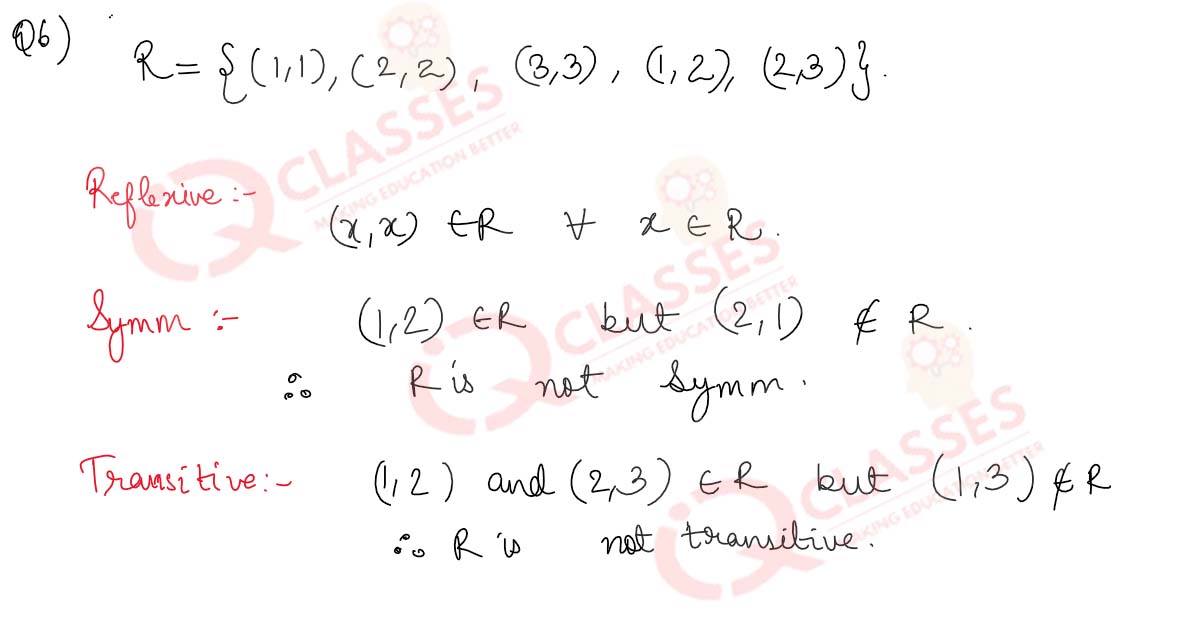 Q6)
R = {(1,1), (2,2), (3,3), (1,2), (2,3)}.
Reflexive :-
(x,x) ∈ R ∀ x ∈ R.
Symm :- (1,2) ∈ R but (2,1) ∉ R.
∴ R is not symm.
Transitive :- (1,2) and (2,3) ∈ R but (1,3) ∉ R
∴ R is not transitive.
IQ CLASSES
MAKING EDUCATION BETTER
IQ CLASSES
MAKING EDUCATION BETTER
IQ CLASSES
MAKING EDUCATION BETTER